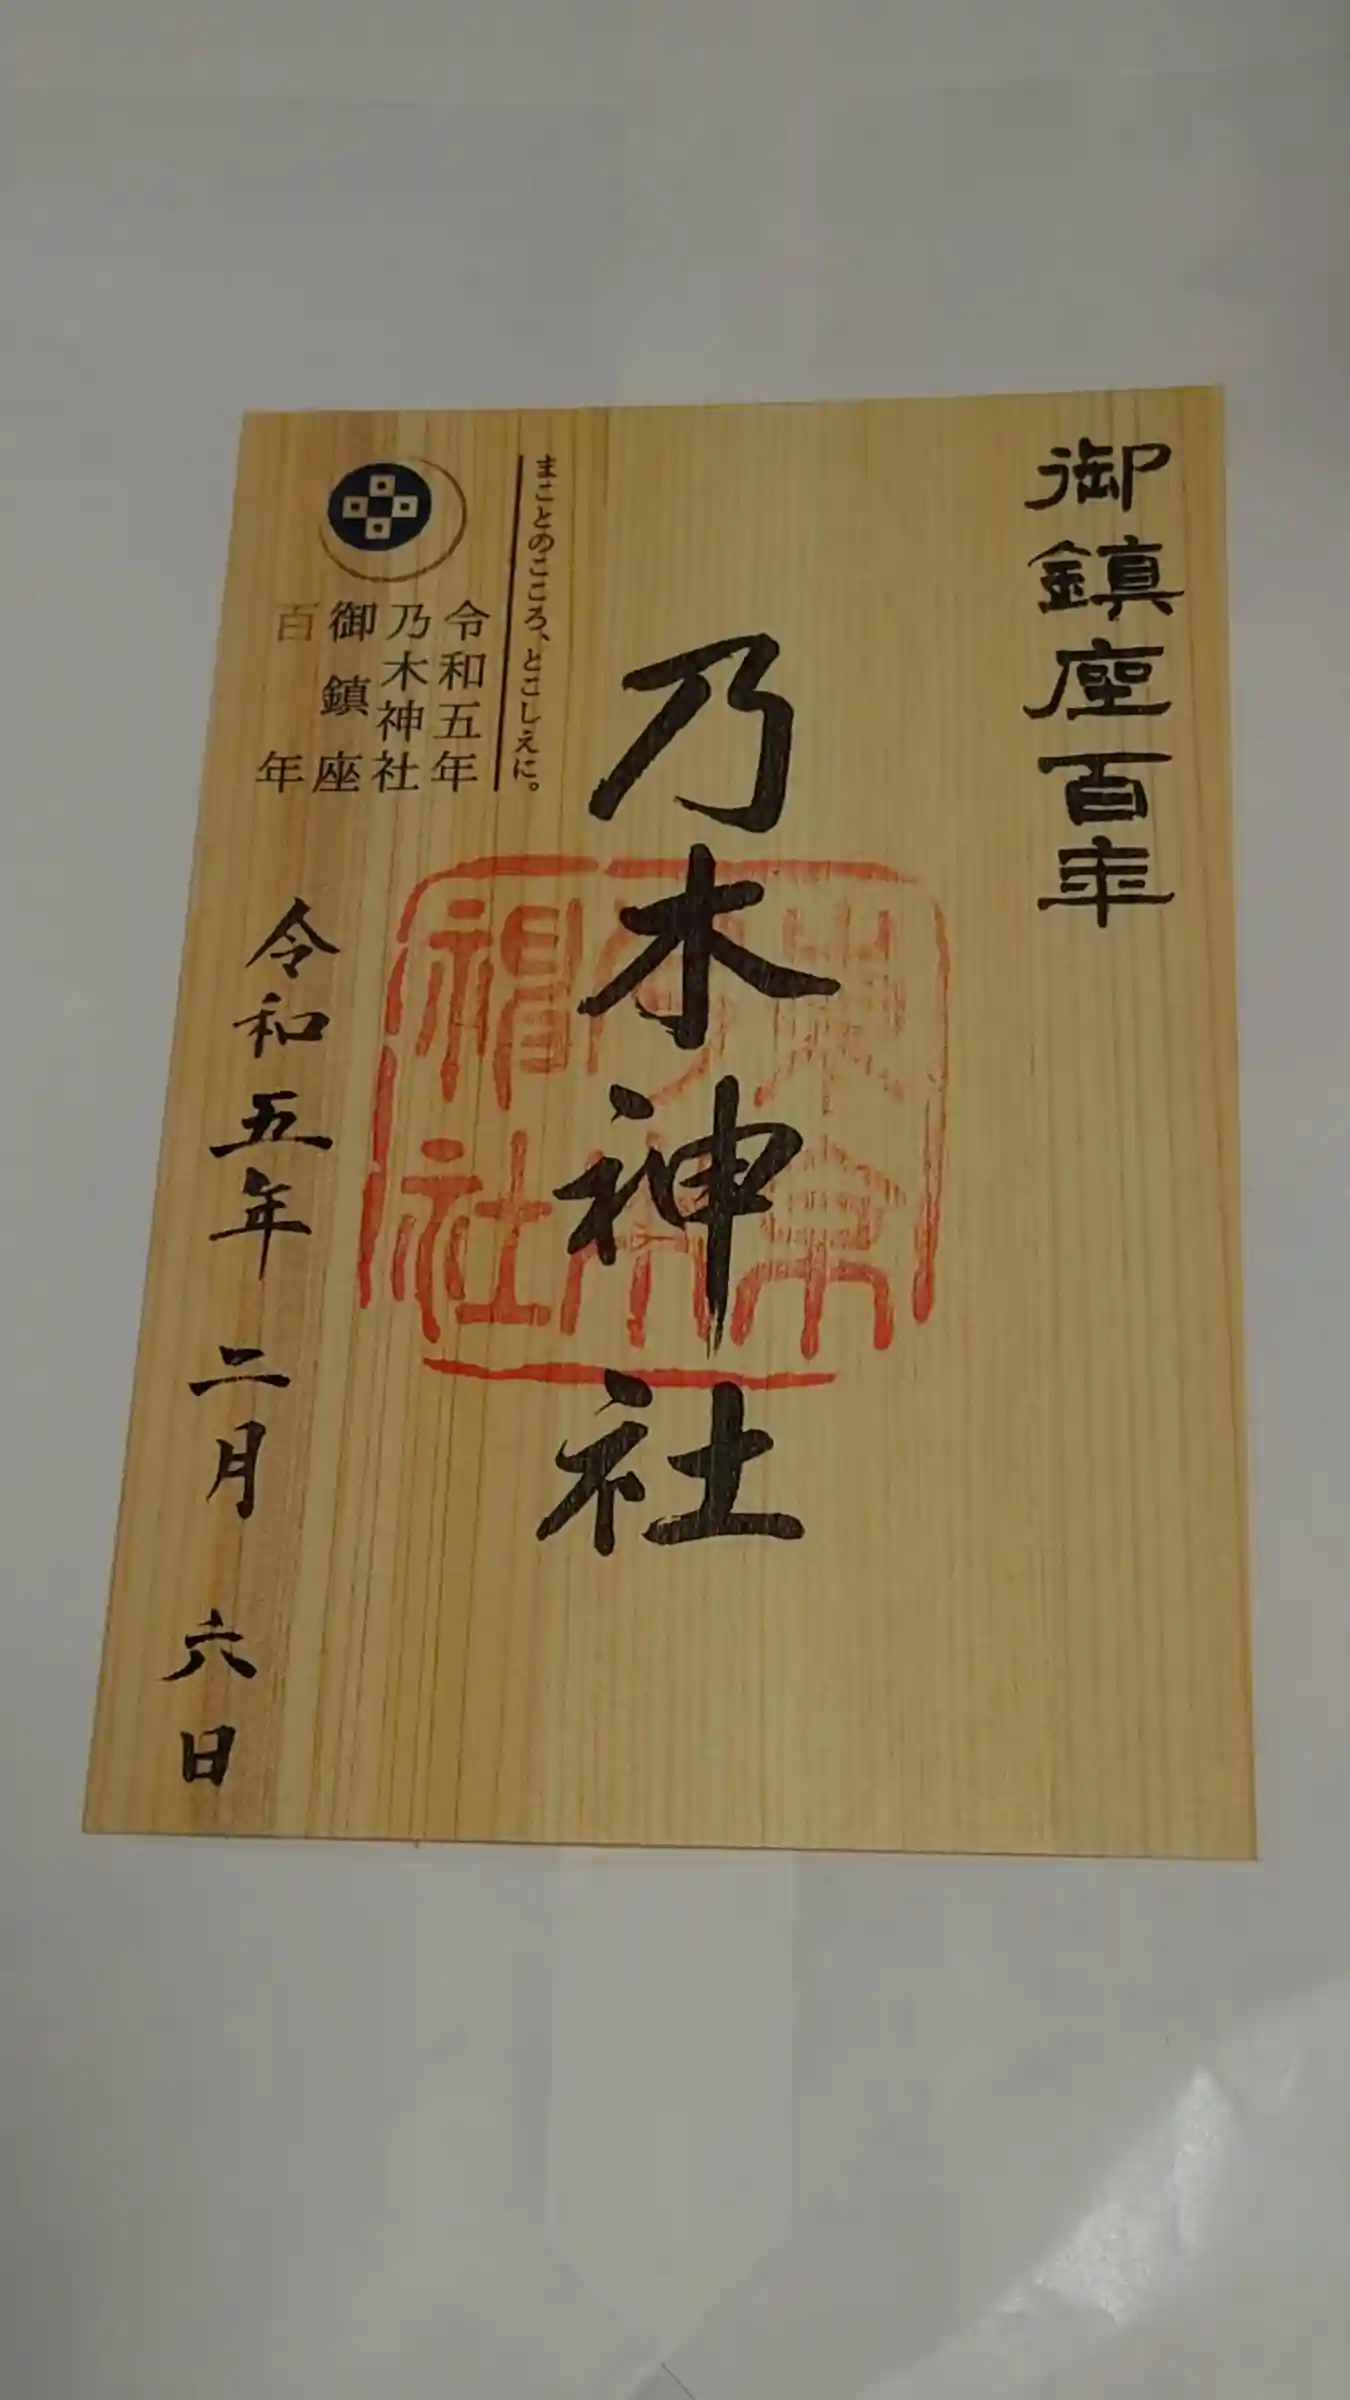 御鎮座百年
乃木神社
東京乃木神社
まことのこころ、とこしえに。
令和五年
乃木神社
御鎮座
百年
令和五年 二月 六日